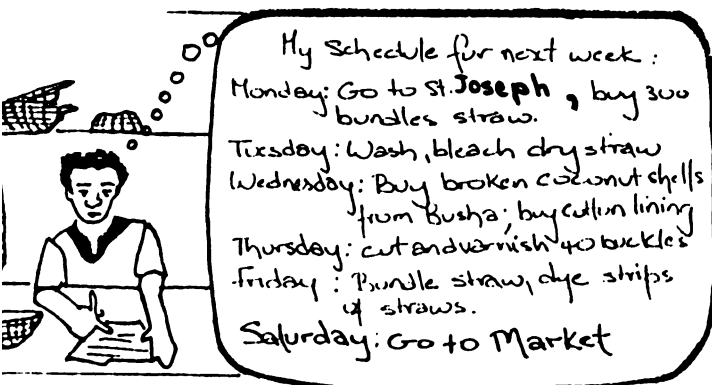 My Schedule for next week:
Monday: Go to St. Joseph, buy 300
bundles straw.
Tuesday: Wash, bleach dry straw
Wednesday: Buy broken coconut shells
from Busha; buy cotton lining
Thursday: cut and varnish 40 buckles
Friday: Bundle straw, dye strips
of straws.
Saturday: Go to Market